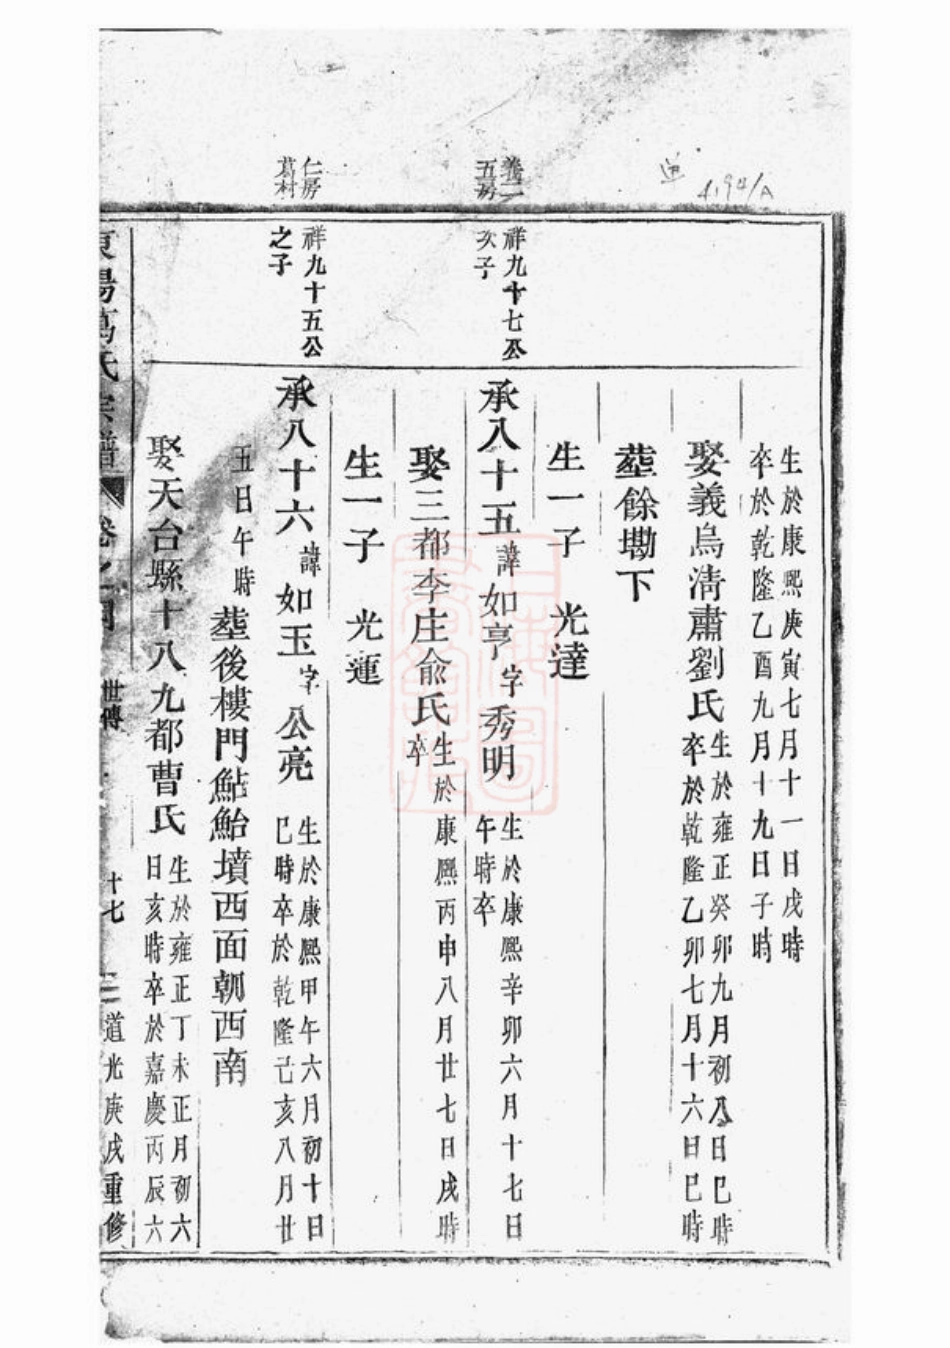 生於康熙庚寅七月十一日戌時
卒於乾隆乙酉九月十九日子時
娶義烏清肅劉氏
生於雍正癸卯九月初八日巳時
卒於乾隆乙卯七月十六日巳時
塟餘塾下
生一子 光達
義二
五房
祥九十七公
次子
承八十五諱如亨字秀明
生於康熙辛卯六月十七日
午時卒
娶三都李庄俞氏
生於康熙丙申八月廿七日戌時
卒
生一子 光運
仁房
葛村
祥九十五公
之子
承八十六諱如玉字公亮
生於康熙甲午六月初十日
巳時卒於乾隆己亥八月廿
五日午時
塟後樓門鮎鮐墳西面朝西南
娶天台縣十八九都曹氏
生於雍正丁未正月初六
日亥時卒於嘉慶丙辰六
東陽葛氏宗譜 卷之 世傳 十七 道光庚戌重修
4.94/A